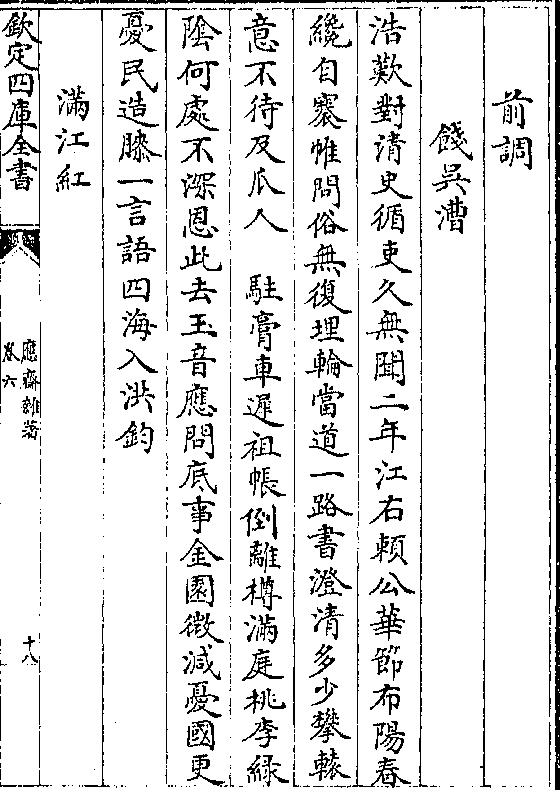 前調
餞吳漕
浩歎對清史循吏久無聞二年江右頼公華節布陽春
纔自褰帷問俗無復埋輪當道一路書澄清多少攀轅
意不待及瓜人　駐膏車遲祖帳倒離樽滿庭桃李緑
陰何處不深恩此去玉音應問底事金園微減憂國更
憂民造膝一言語四海入洪鈞
滿江紅
欽定四庫全書
應齋雜著
卷六
十八